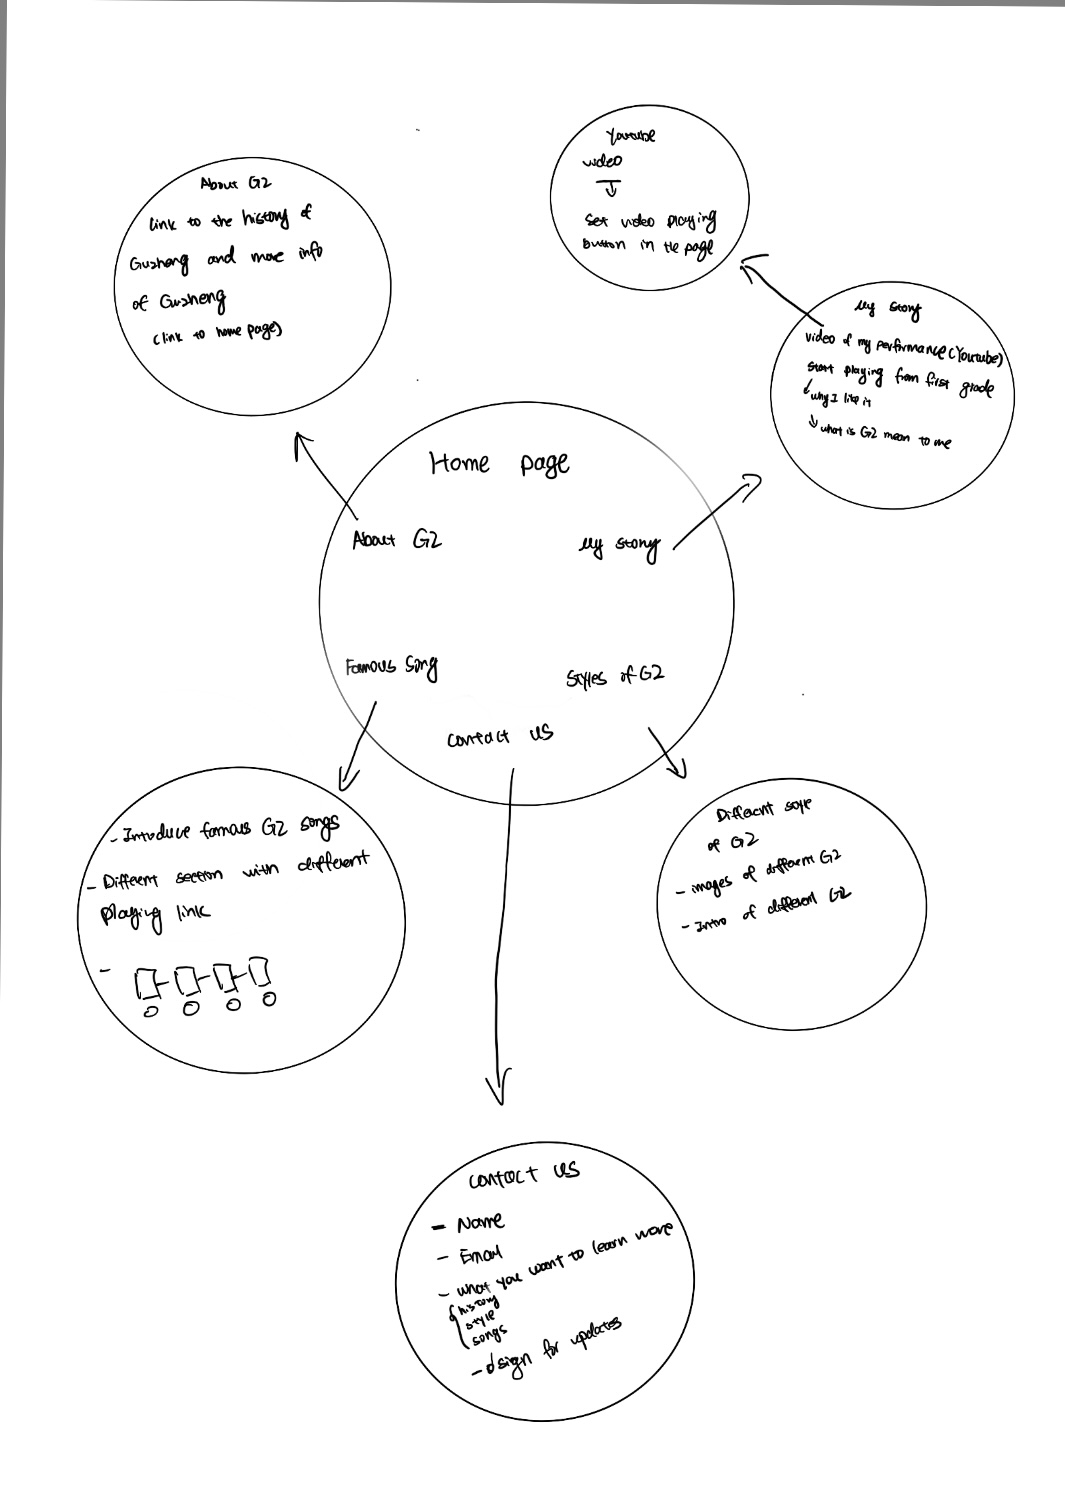 Youtube
video
Set video playing
button in the page
About GZ
link to the history of
Guzheng and more info
of Guzheng
(link to home page)
My story
video of my performance (Youtube)
start playing from first grade
why I like it
what is GZ mean to me
Home page
About GZ
My story
Famous Song
Styles of GZ
Contact US
- Introduce famous GZ songs
- Different section with different
playing link
-
Different style
of GZ
- images of different GZ
- Intro of different GZ
Contact US
- Name
- Email
- what you want to learn more
history
style
songs
- sign for updates